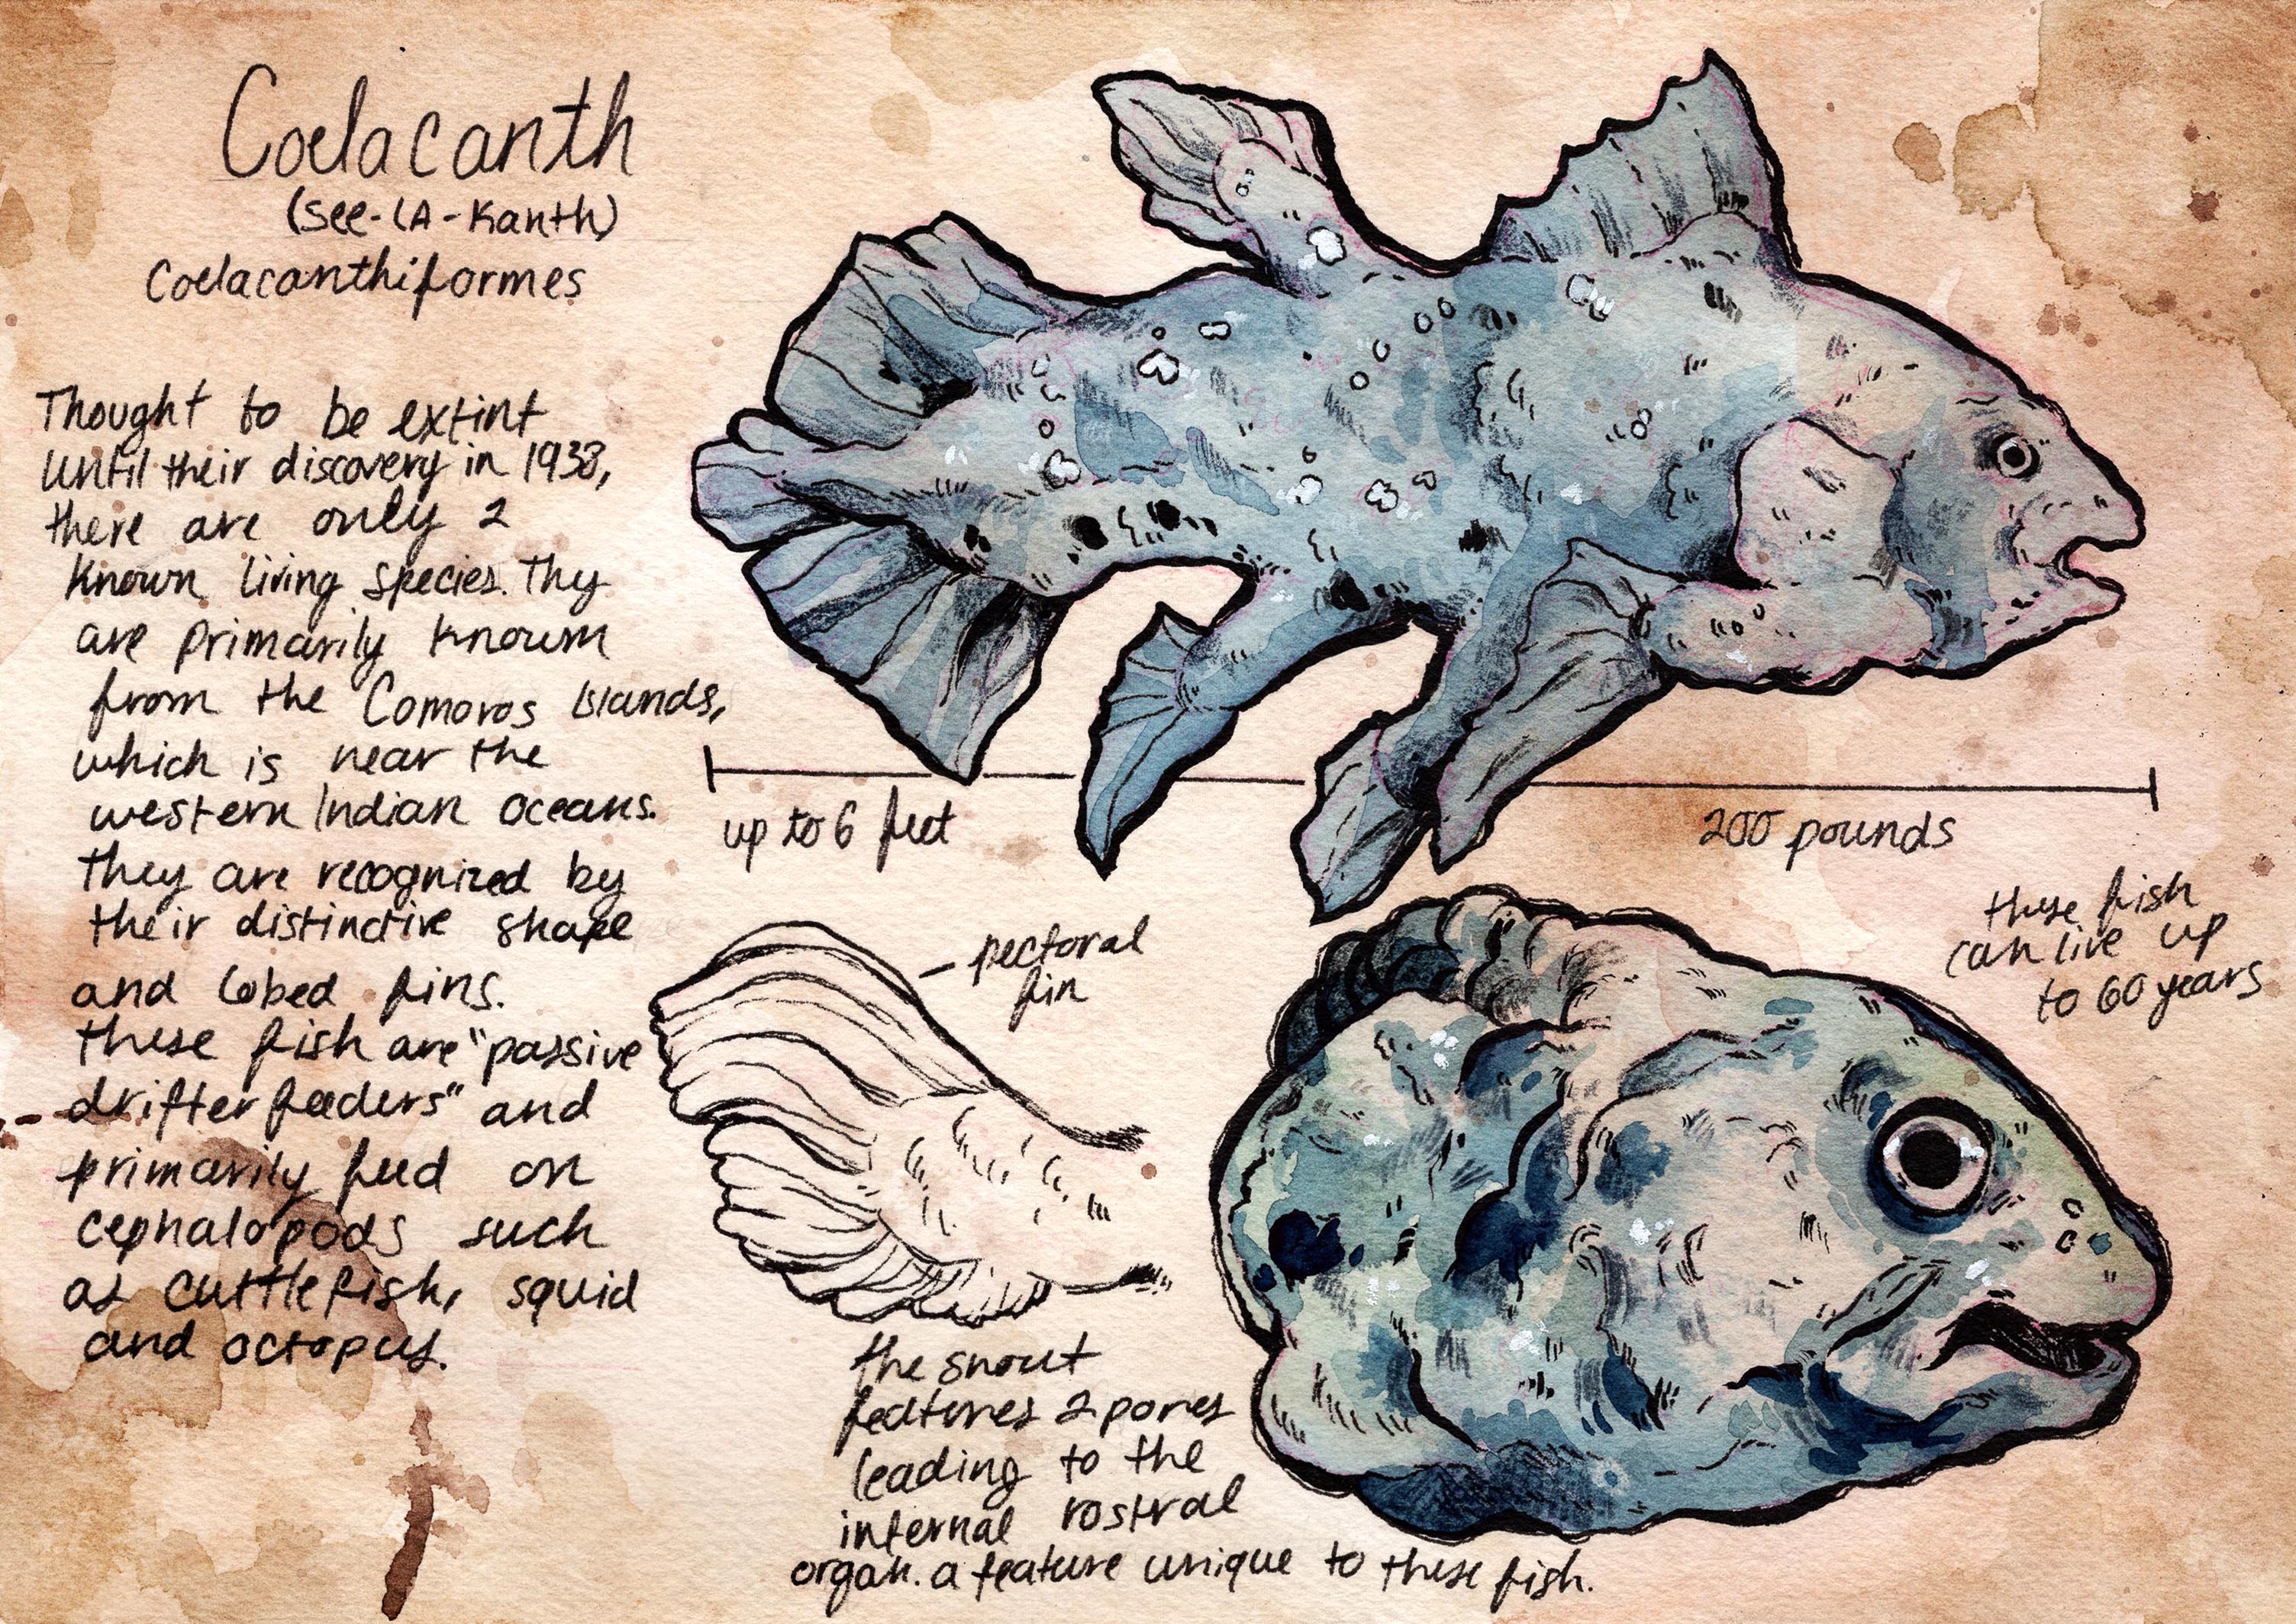 Coelacanth
(see-LA-Kanth)
Coelacanthiformes
Thought to be extint
until their discovery in 1938,
there are only 2
known living species. Thy
are primarily known
from the Comoros Islands,
which is near the
western Indian oceans.
they are recognized by
their distinctive shape
and lobed fins.
these fish are "passive
drifter feeders" and
primarily feed on
cephalopods such
as cuttlefish, squid
and octopus.
up to 6 feet
200 pounds
these fish
can live up
to 60 years
pectoral
fin
the snout
features 2 pores
leading to the
internal rostral
organ. a feature unique to these fish.